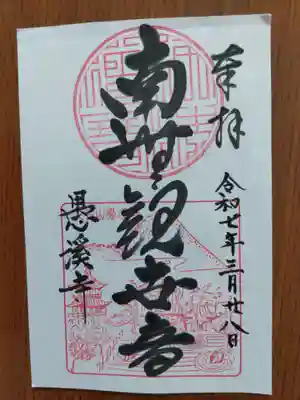 奉拝
令和七年三月廿八日
南無観世音
愚溪寺